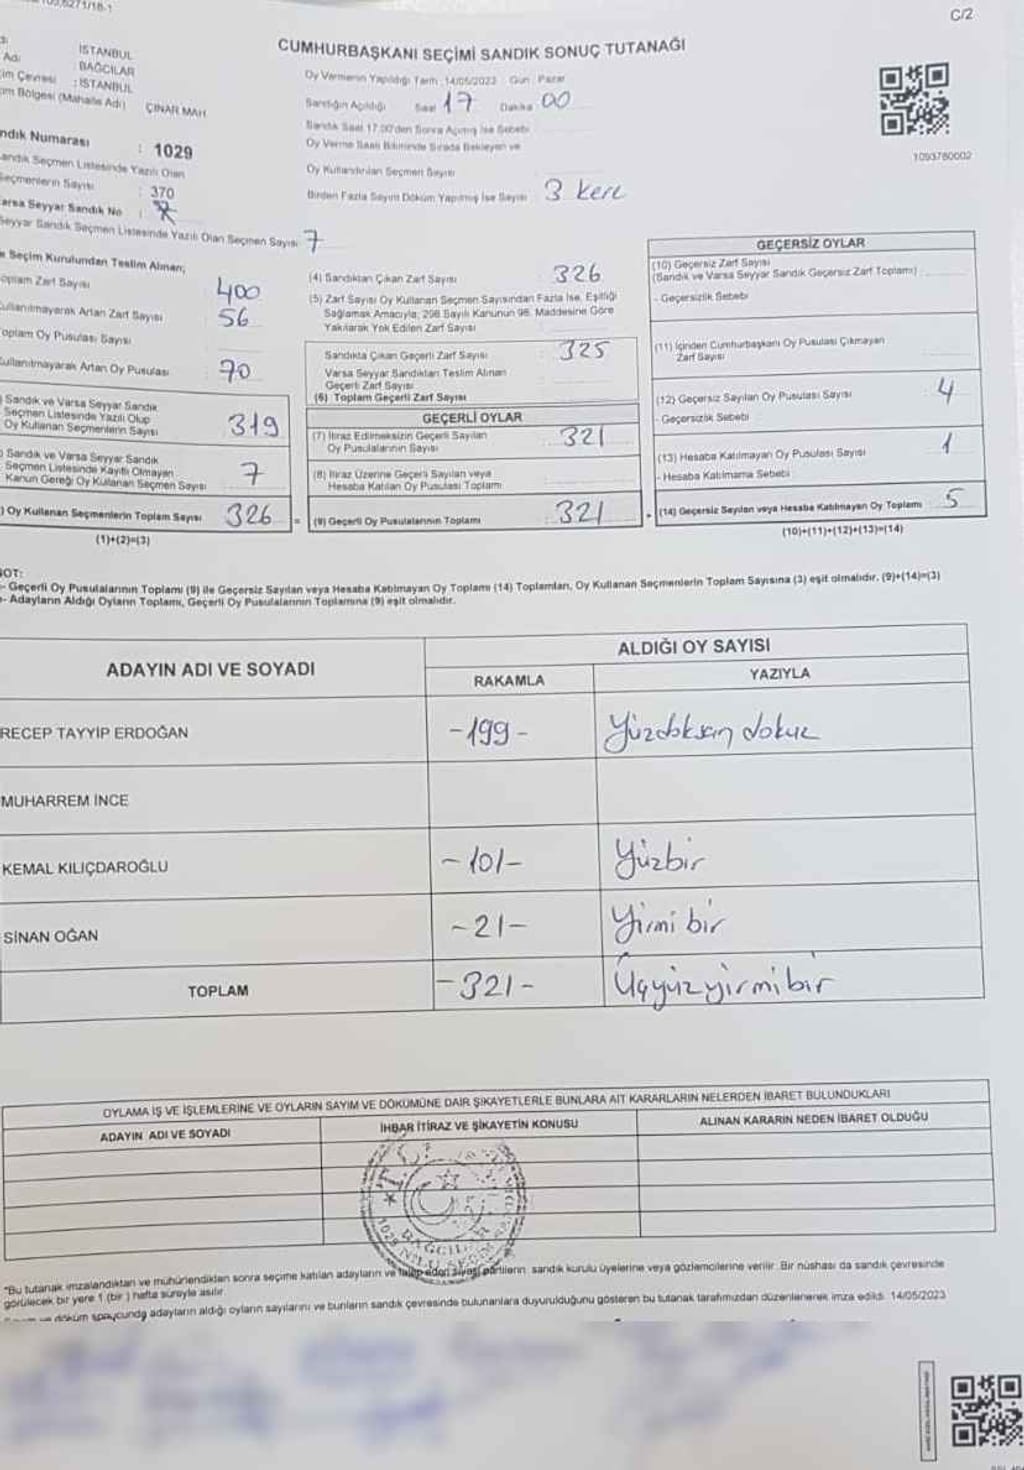 C/2
CUMHURBAŞKANI SEÇİMİ SANDIK SONUÇ TUTANAĞI
: İSTANBUL
Adı : BAĞCILAR
im Çevresi : İSTANBUL
im Bölgesi (Mahalle Adı) ÇINAR MAH.
Oy Vermenin Yapıldığı Tarih :14/05/2023 Gün : Pazar
Sandığın Açıldığı Saat 17 Dakika 00
Sandık Saat 17:00'den Sonra Açılmış İse Sebebi
Oy Verme Saati Bitiminde Sırada Bekleyen ve
Oy Kullandırılan Seçmen Sayısı
Birden Fazla Sayım Döküm Yapılmış İse Sayısı 3 kere
1093780002
ndık Numarası : 1029
andık Seçmen Listesinde Yazılı Olan
Seçmenlerin Sayısı : 370
arsa Seyyar Sandık No :
Seyyar Sandık Seçmen Listesinde Yazılı Olan Seçmen Sayısı 7
e Seçim Kurulundan Teslim Alınan;
oplam Zarf Sayısı 400
ullanılmayarak Artan Zarf Sayısı 56
oplam Oy Pusulası Sayısı
ullanılmayarak Artan Oy Pusulası 70
) Sandık ve Varsa Seyyar Sandık
Seçmen Listesinde Yazılı Olup
Oy Kullanan Seçmenlerin Sayısı 319
) Sandık ve Varsa Seyyar Sandık
Seçmen Listesinde Kayıtlı Olmayan
Kanun Gereği Oy Kullanan Seçmen Sayısı 7
) Oy Kullanan Seçmenlerin Toplam Sayısı 326 =
(1)+(2)=(3)
(4) Sandıktan Çıkan Zarf Sayısı 326
(5) Zarf Sayısı Oy Kullanan Seçmen Sayısından Fazla İse, Eşitliği
Sağlamak Amacıyla; 298 Sayılı Kanunun 98. Maddesine Göre
Yakılarak Yok Edilen Zarf Sayısı
Sandıkta Çıkan Geçerli Zarf Sayısı 325
Varsa Seyyar Sandıktan Teslim Alınan
Geçerli Zarf Sayısı
(6) Toplam Geçerli Zarf Sayısı
GEÇERLİ OYLAR
(7) İtiraz Edilmeksizin Geçerli Sayılan
Oy Pusulalarının Sayısı 321
(8) İtiraz Üzerine Geçerli Sayılan veya
Hesaba Katılan Oy Pusulası Toplamı
(9) Geçerli Oy Pusulalarının Toplamı 321 +
GEÇERSİZ OYLAR
(10) Geçersiz Zarf Sayısı
(Sandık ve Varsa Seyyar Sandık Geçersiz Zarf Toplamı)
- Geçersizlik Sebebi
(11) İçinden Cumhurbaşkanı Oy Pusulası Çıkmayan
Zarf Sayısı
(12) Geçersiz Sayılan Oy Pusulası Sayısı 4
- Geçersizlik Sebebi
(13) Hesaba Katılmayan Oy Pusulası Sayısı 1
- Hesaba Katılmama Sebebi
(14) Geçersiz Sayılan veya Hesaba Katılmayan Oy Toplamı 5
(10)+(11)+(12)+(13)=(14)
NOT:
- Geçerli Oy Pusulalarının Toplamı (9) ile Geçersiz Sayılan veya Hesaba Katılmayan Oy Toplamı (14) Toplamları, Oy Kullanan Seçmenlerin Toplam Sayısına (3) eşit olmalıdır. (9)+(14)=(3)
- Adayların Aldığı Oyların Toplamı, Geçerli Oy Pusulalarının Toplamına (9) eşit olmalıdır.
ADAYIN ADI VE SOYADI ALDIĞI OY SAYISI
RAKAMLA YAZIYLA
RECEP TAYYİP ERDOĞAN -199- Yüzdoksan dokuz
MUHARREM İNCE
KEMAL KILIÇDAROĞLU -101- Yüzbir
SİNAN OĞAN -21- Yirmi bir
TOPLAM -321- Üçyüzyirmibir
OYLAMA İŞ VE İŞLEMLERİNE VE OYLARIN SAYIM VE DÖKÜMÜNE DAİR ŞİKAYETLERLE BUNLARA AİT KARARLARIN NELERDEN İBARET BULUNDUKLARI
ADAYIN ADI VE SOYADI İHBAR İTİRAZ VE ŞİKAYETİN KONUSU ALINAN KARARIN NEDEN İBARET OLDUĞU
T.C.
BAĞCILAR
1029 NOLU SEÇİM
*Bu tutanak imzalandıktan ve mühürlendikten sonra seçime katılan adayların ve talep eden siyasi partilerin, sandık kurulu üyelerine veya gözlemcilerine verilir. Bir nüshası da sandık çevresinde
görülecek bir yere 1 (bir ) hafta süreyle asılır.
döküm sonucunda adayların aldığı oyların sayılarını ve bunların sandık çevresinde bulunanlara duyurulduğunu gösteren bu tutanak tarafımızdan düzenlenerek imza edildi. 14/05/2023